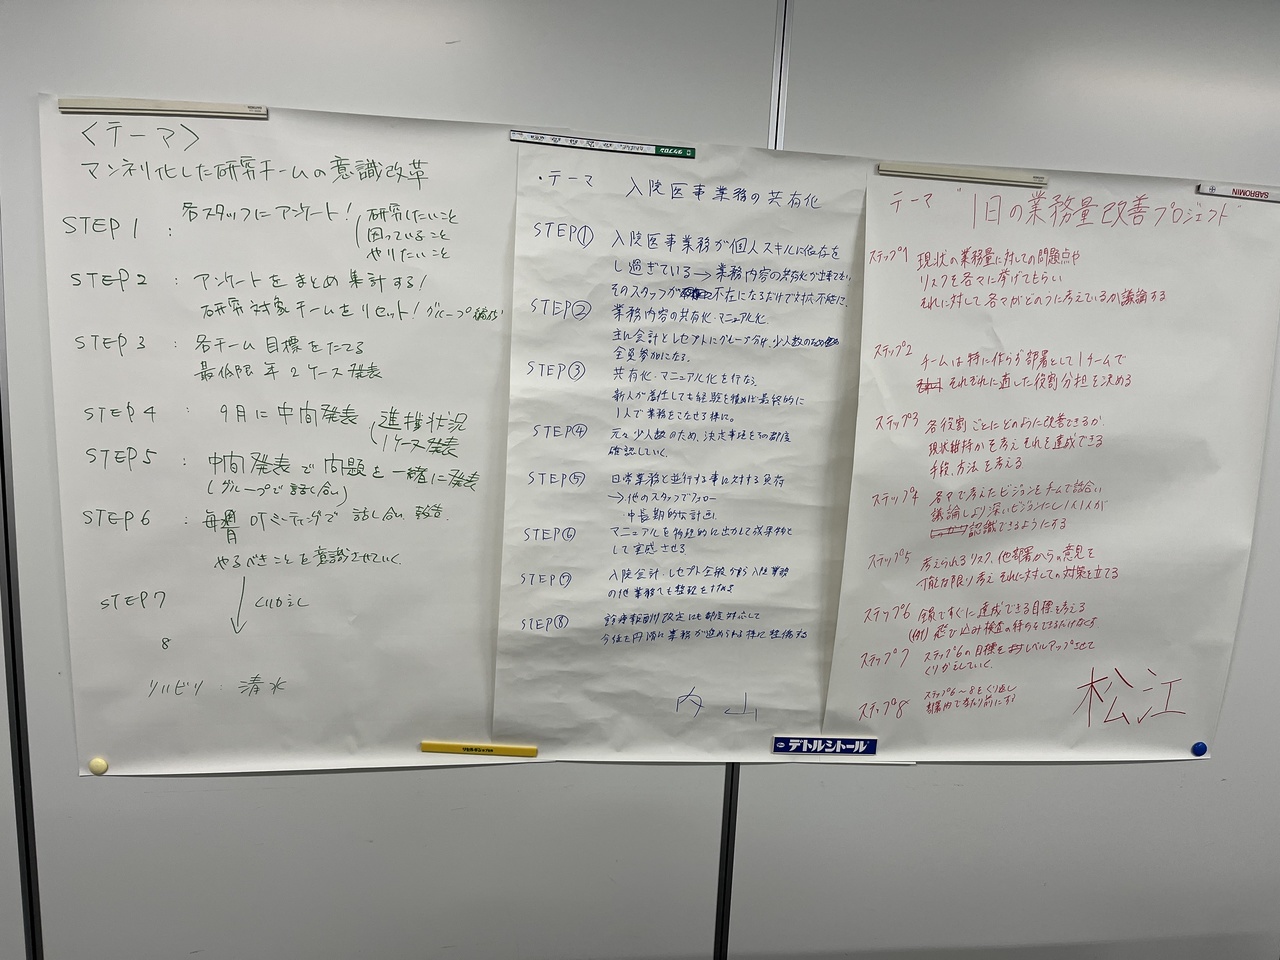 〈テーマ〉
マンネリ化した研究チームの意識改革
STEP 1 : 各スタッフにアンケート! (研究したいこと
困っていること
やりたいこと
STEP 2 : アンケートをまとめ集計する!
研究対象チームをリセット! グループ編成
STEP 3 : 各チーム目標をたてる
最低限年2ケース発表
STEP 4 : 9月に中間発表 (進捗状況
1ケース発表
STEP 5 : 中間発表で問題を一緒に発表
(グループで話し合い)
STEP 6 : 毎月OTミーティングで話し合い、報告.
やるべきことを意識させていく.
STEP 7 くりかえし
8
リハビリ : 清水
・テーマ 入院医事業務の共有化
STEP① 入院医事業務が個人スキルに依存を
し過ぎている→業務内容の共有化が出来てない
そのスタッフが不在になるだけで対応不能に.
STEP② 業務内容の共有化・マニュアル化.
主に会計とレセプトにグループ分け.少人数のため
全員参加になる.
STEP③ 共有化・マニュアル化を行なう.
新人が着任しても経験を積めば最終的に
1人で業務をこなせる様に。
STEP④ 元々少人数のため、決定事項をその都度
確認していく.
STEP⑤ 日常業務と並行する事に対する負荷
→他のスタッフでフォロー
中長期的な計画.
STEP⑥ マニュアルを段階的に出力して成果物と
して実感させる
STEP⑦ 入院会計・レセプト全般から入院業務
の他業務でも整理をすすめ
STEP⑧ 診療報酬改定にも都度対応して
今後も円滑に業務が進められる様に整備する
内山
テーマ "1日の業務量改善プロジェクト"
ステップ1 現状の業務量に対しての問題点や
リスクを各々に挙げてもらい
それに対して各々がどのように考えているか議論する
ステップ2 チームは特に作らず部署として1チームで
それぞれに適した役割分担を決める
ステップ3 各役割ごとにどのように改善できるか.
現状維持かを考えそれを達成できる
手段、方法を考える
ステップ4 各々で考えたビジョンをチームで話合い
議論しより深いビジョンにし1人1人が
認識できるようにする
ステップ5 考えられるリスク、他部署からの意見を
可能な限り考えそれに対しての対策を立てる
ステップ6 全員ですぐに達成できる目標を考える
(例) 飛び込み検査の待ちをできるだけなくす
ステップ7 ステップ6の目標をレベルアップさせて
くりかえしていく.
ステップ8 ステップ6〜8をくり返し
部署内で当たり前にする
松江
デトルシトール
SABROMIN